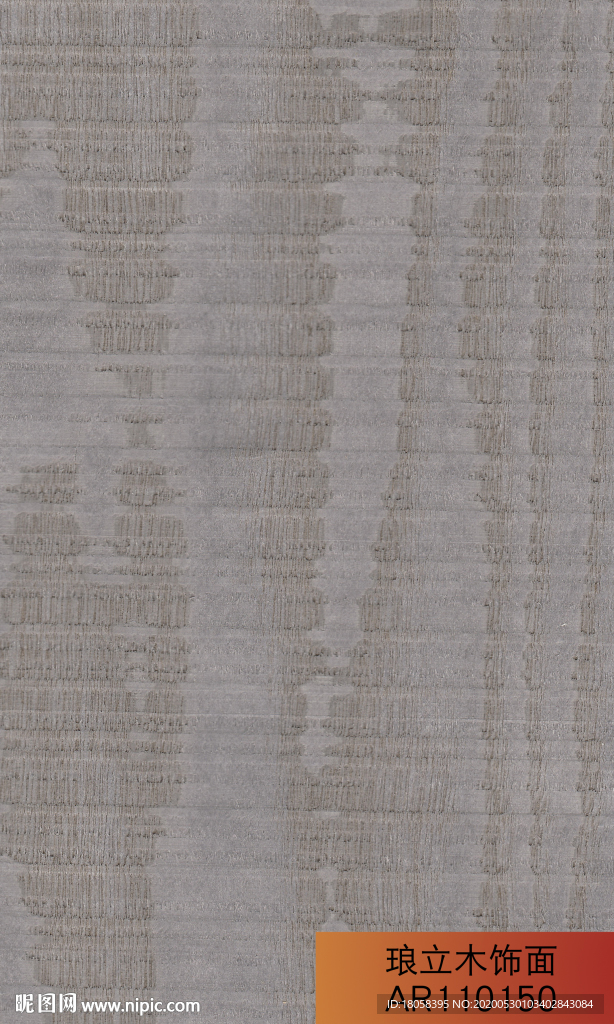 琅立木饰面
AR110150
ID:18058395 NO:20200530103402843084
昵图网 www.nipic.com